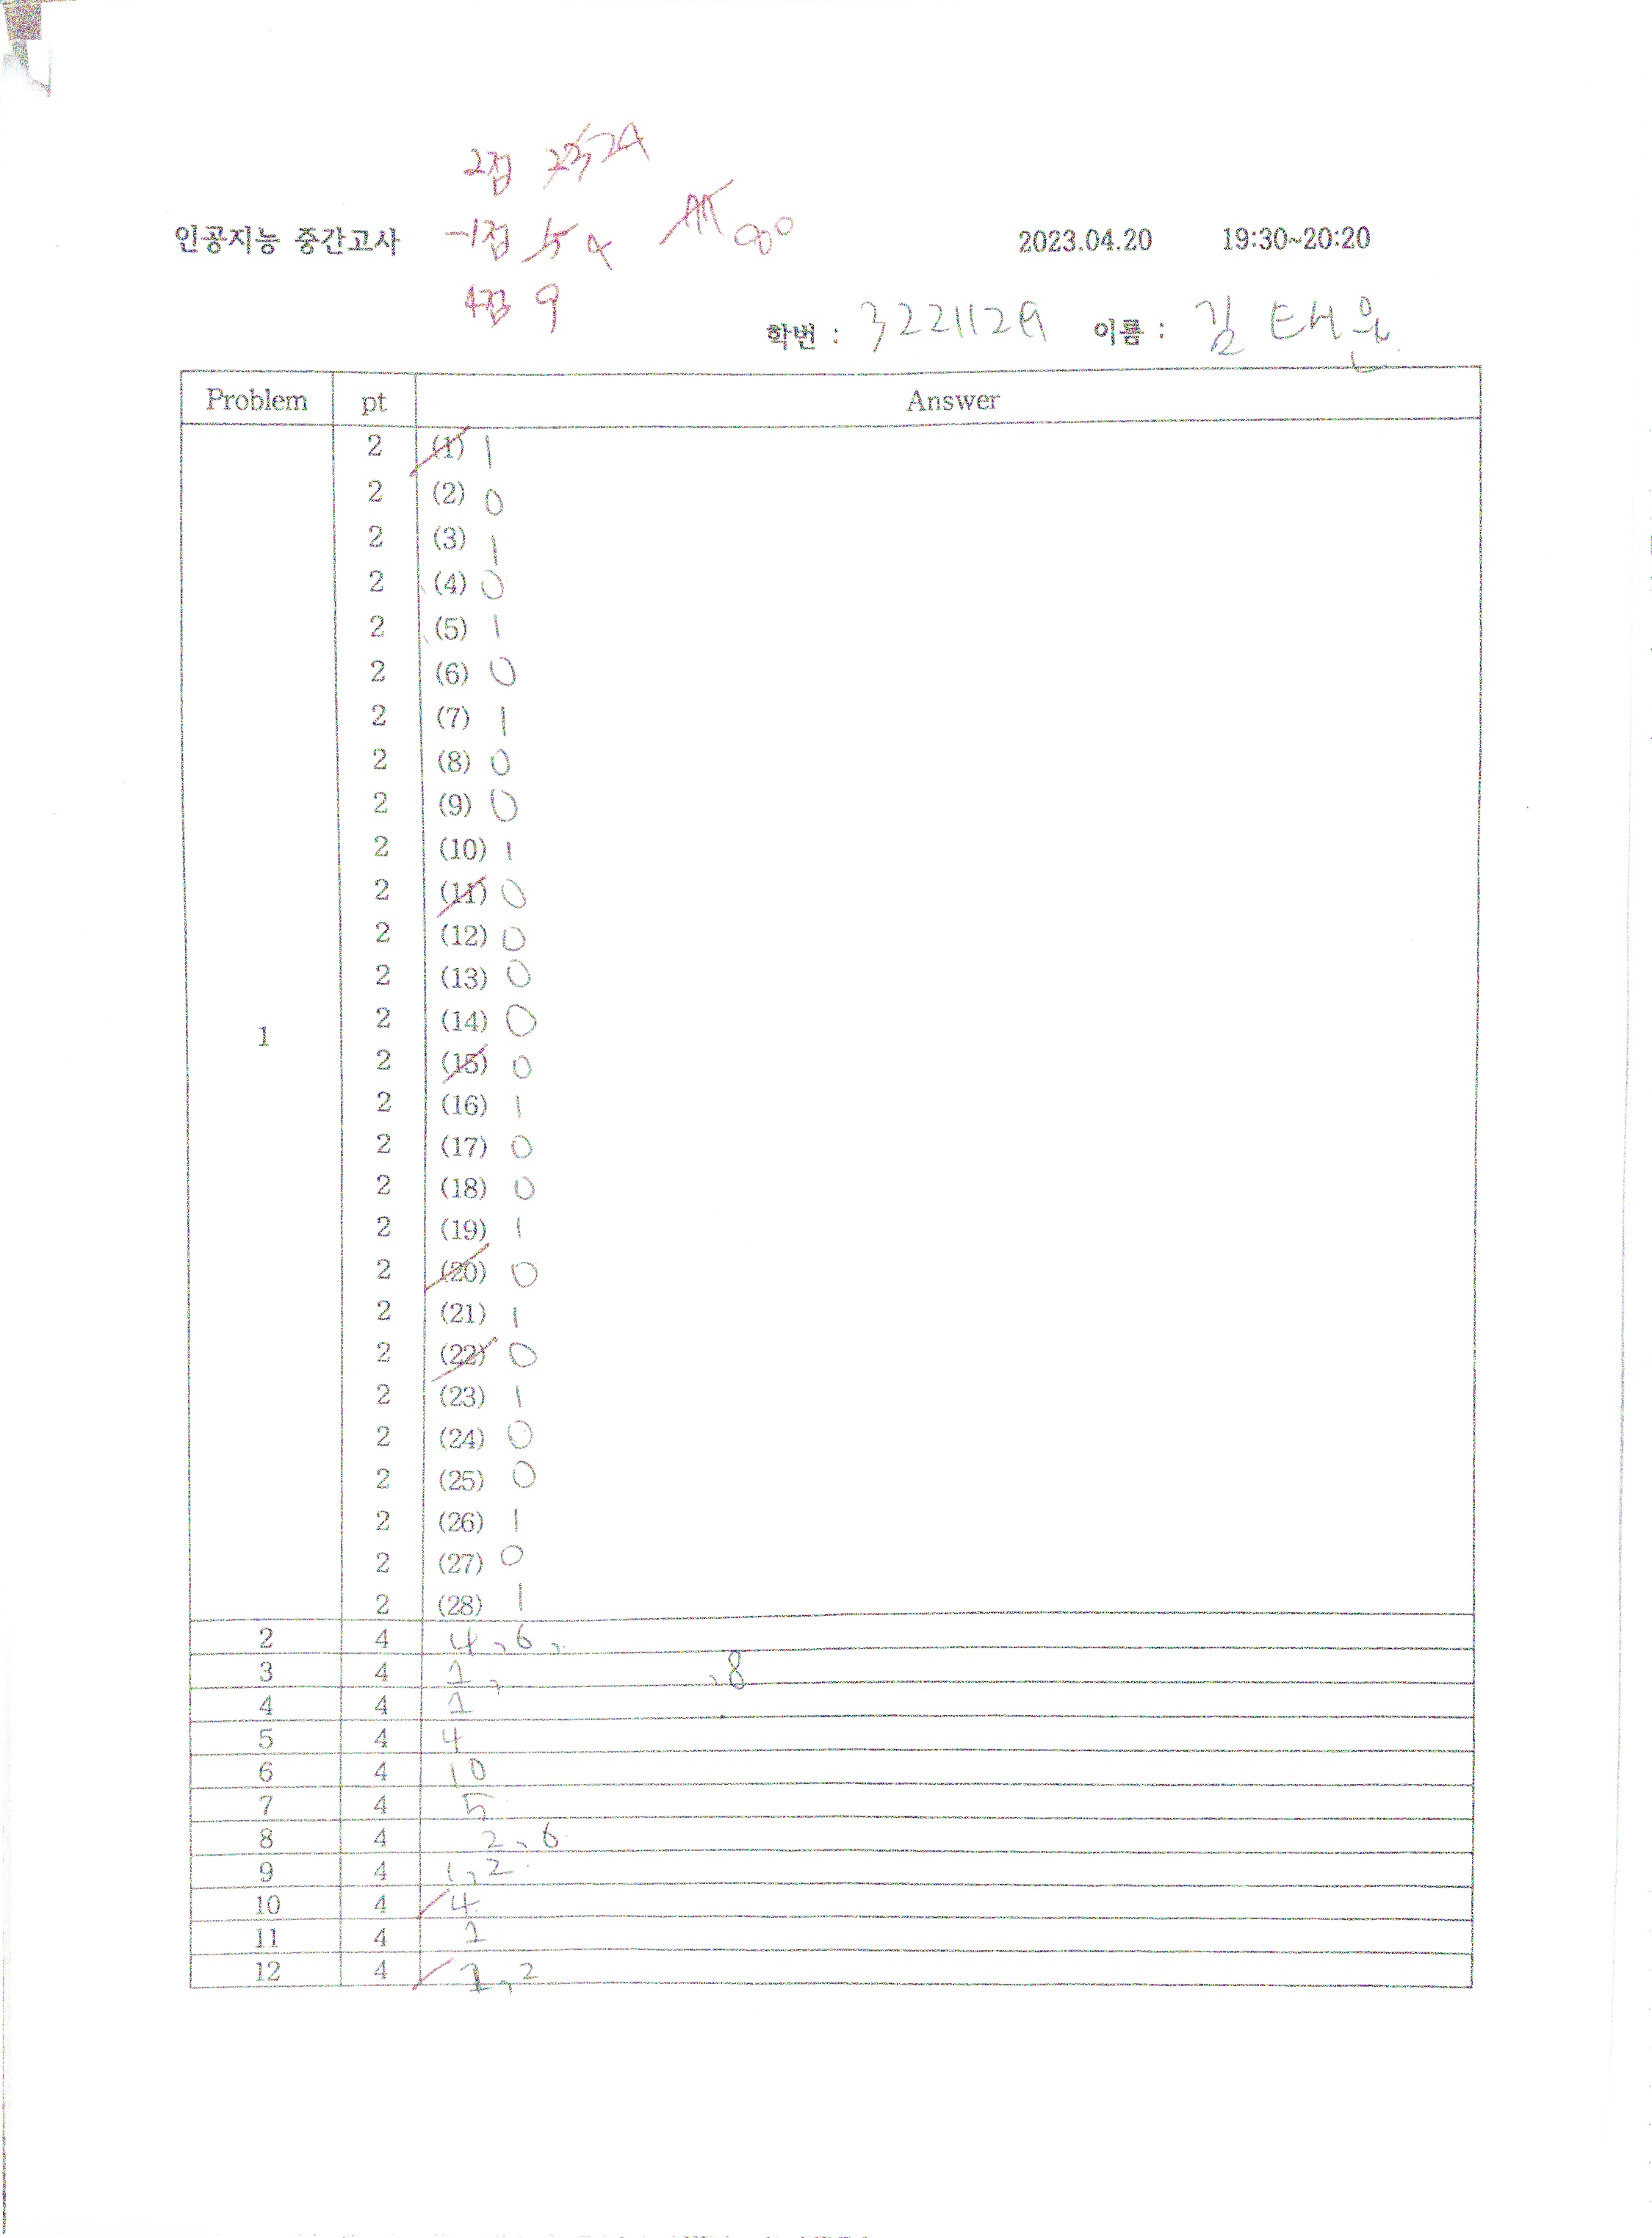 2점 23 24
인공지능 중간고사 -1점 5 4 77 80 2023.04.20 19:30~20:20
4점 9
학번 : 32211129 이름 : 김태완
Problem pt Answer
2 (1) 1
2 (2) 0
2 (3) 1
2 (4) 0
2 (5) 1
2 (6) 0
2 (7) 1
2 (8) 0
2 (9) 0
2 (10) 1
2 (11) 0
2 (12) 0
2 (13) 0
2 (14) 0
1
2 (15) 0
2 (16) 1
2 (17) 0
2 (18) 0
2 (19) 1
2 (20) 0
2 (21) 1
2 (22) 0
2 (23) 1
2 (24) 0
2 (25) 0
2 (26) 1
2 (27) 0
2 (28) 1
2 4 4, 6,
3 4 1, ,8
4 4 1
5 4 4
6 4 10
7 4 5
8 4 2, 6
9 4 1, 2
10 4 4
11 4 1
12 4 1, 2